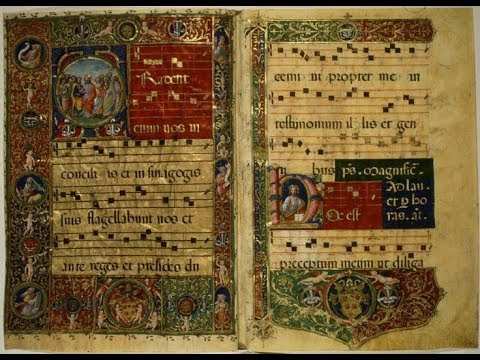 Radent
enim uos in
concili is et in sinagogis
suis flagellabunt uos et
ante reges et presides du
cemi ni propter me in
testimonium il lis et gen
ti bus ps. Magnific̄.
Ad lau
et ꝑ ho
ras. añ.
Oc est
preceptum meum ut diliga